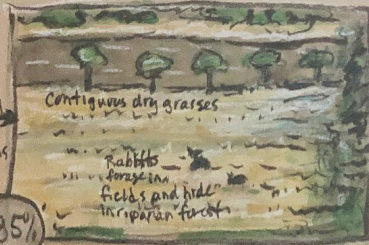 Contiguous dry grasses
Rabbits
forage in
fields and hide
in riparian forest
95%